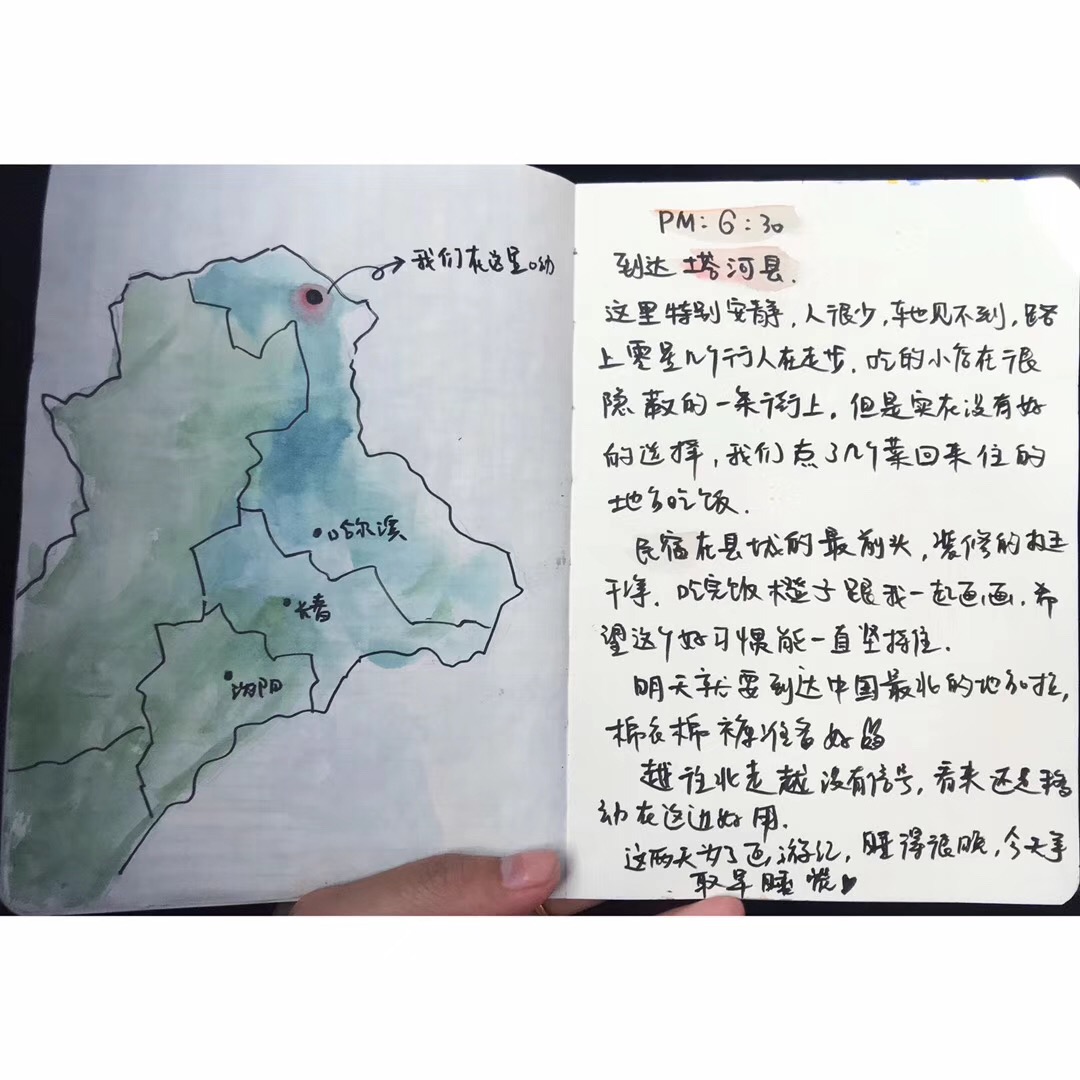 我们在这里呦
哈尔滨
长春
沈阳
PM:6:30
到达 塔河县.
这里特别安静,人很少,车也见不到,路
上零星几个行人在走步.吃的小店在很
隐蔽的一条街上,但是实在没有好
的选择,我们点了几个菜回来住的
地方吃饭.
民宿在县城的最前头,装修的挺
干净.吃完饭橙子跟我一起画画,希
望这个好习惯能一直坚持住.
明天就要到达中国最北的地方拉,
棉衣棉裤准备好
越往北走越没有信号,看来还是移
动在这边好用.
这两天为了画游记,睡得很晚,今天争
取早睡